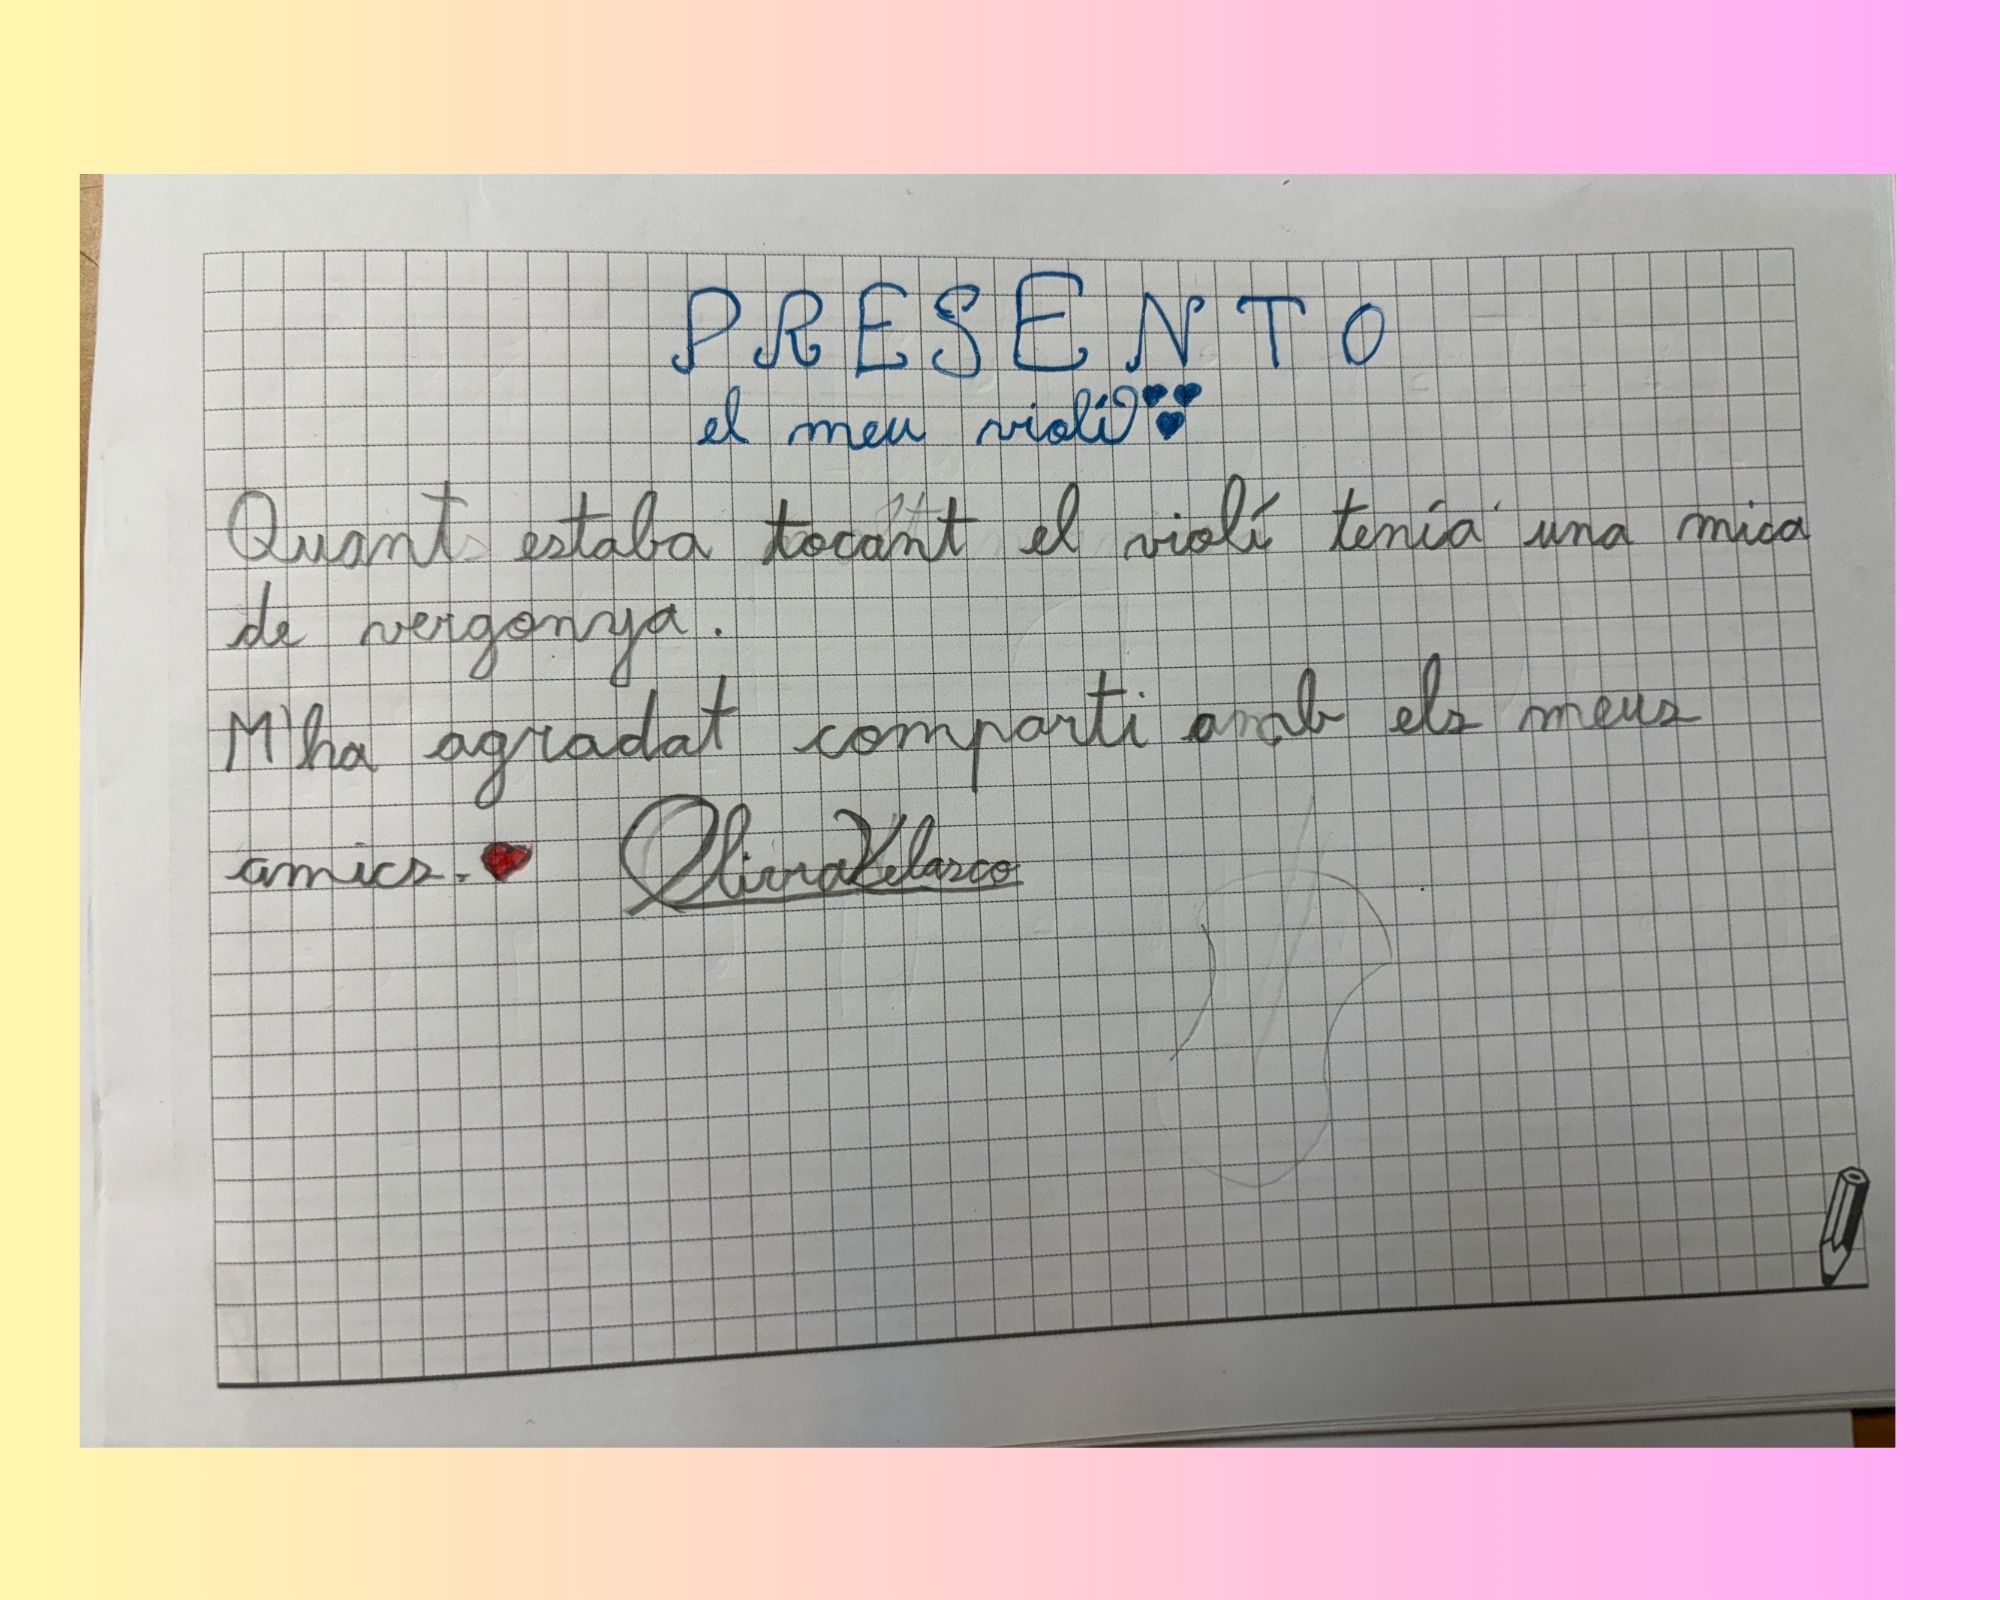 PRESENTO
el meu violí
Quant estaba tocant el violí tenía una mica
de vergonya.
M'ha agradat comparti amb els meus
amics. Olivia Velasco